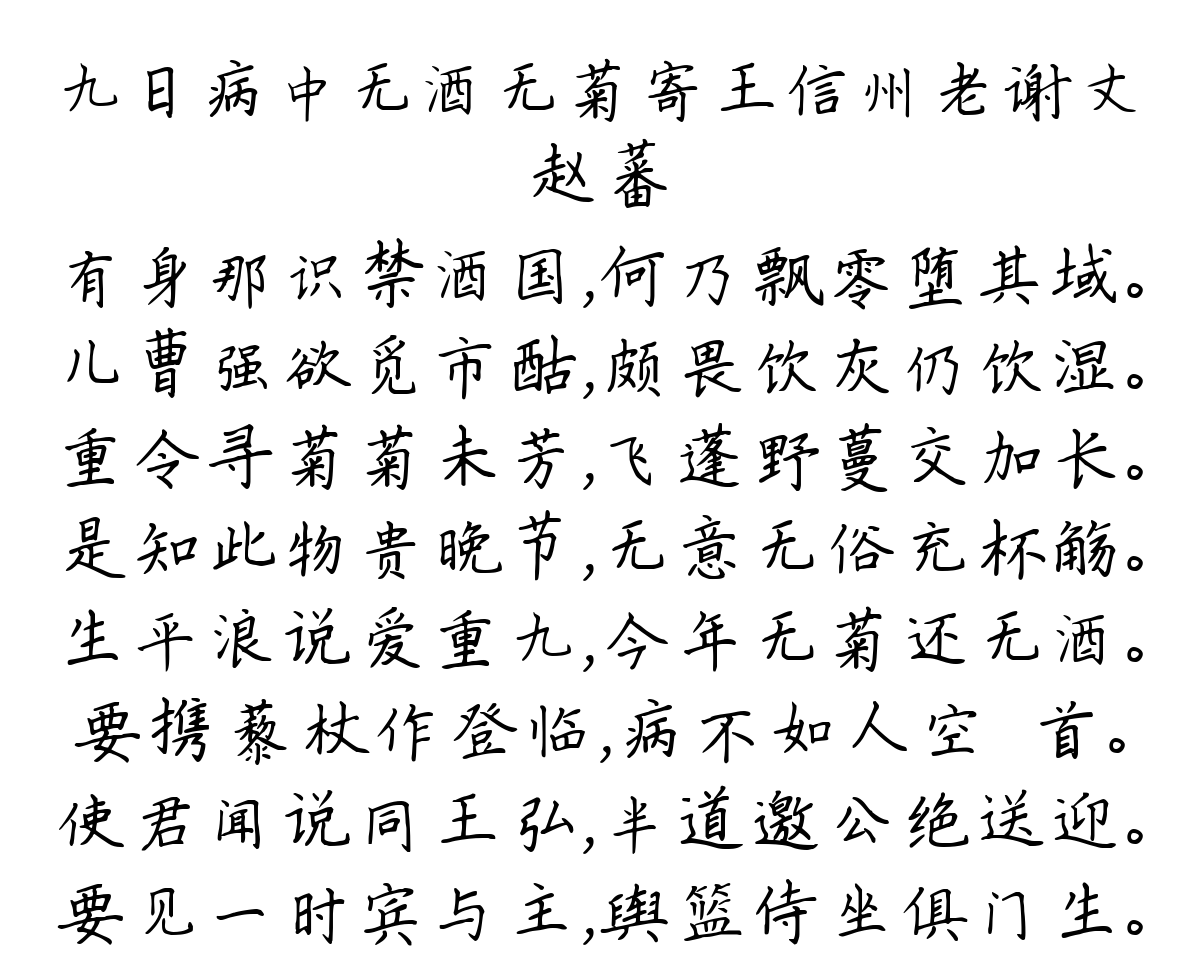 九日病中无酒无菊寄王信州老谢丈
赵蕃
有身那识禁酒国,何乃飘零堕其域。
儿曹强欲觅市酤,颇畏饮灰仍饮湿。
重令寻菊菊未芳,飞蓬野蔓交加长。
是知此物贵晚节,无意无俗充杯觞。
生平浪说爱重九,今年无菊还无酒。
要携藜杖作登临,病不如人空 首。
使君闻说同王弘,半道邀公绝送迎。
要见一时宾与主,舆篮侍坐俱门生。